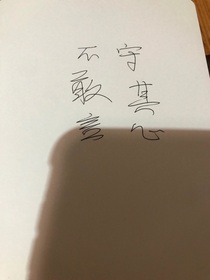 守其心
不敢言